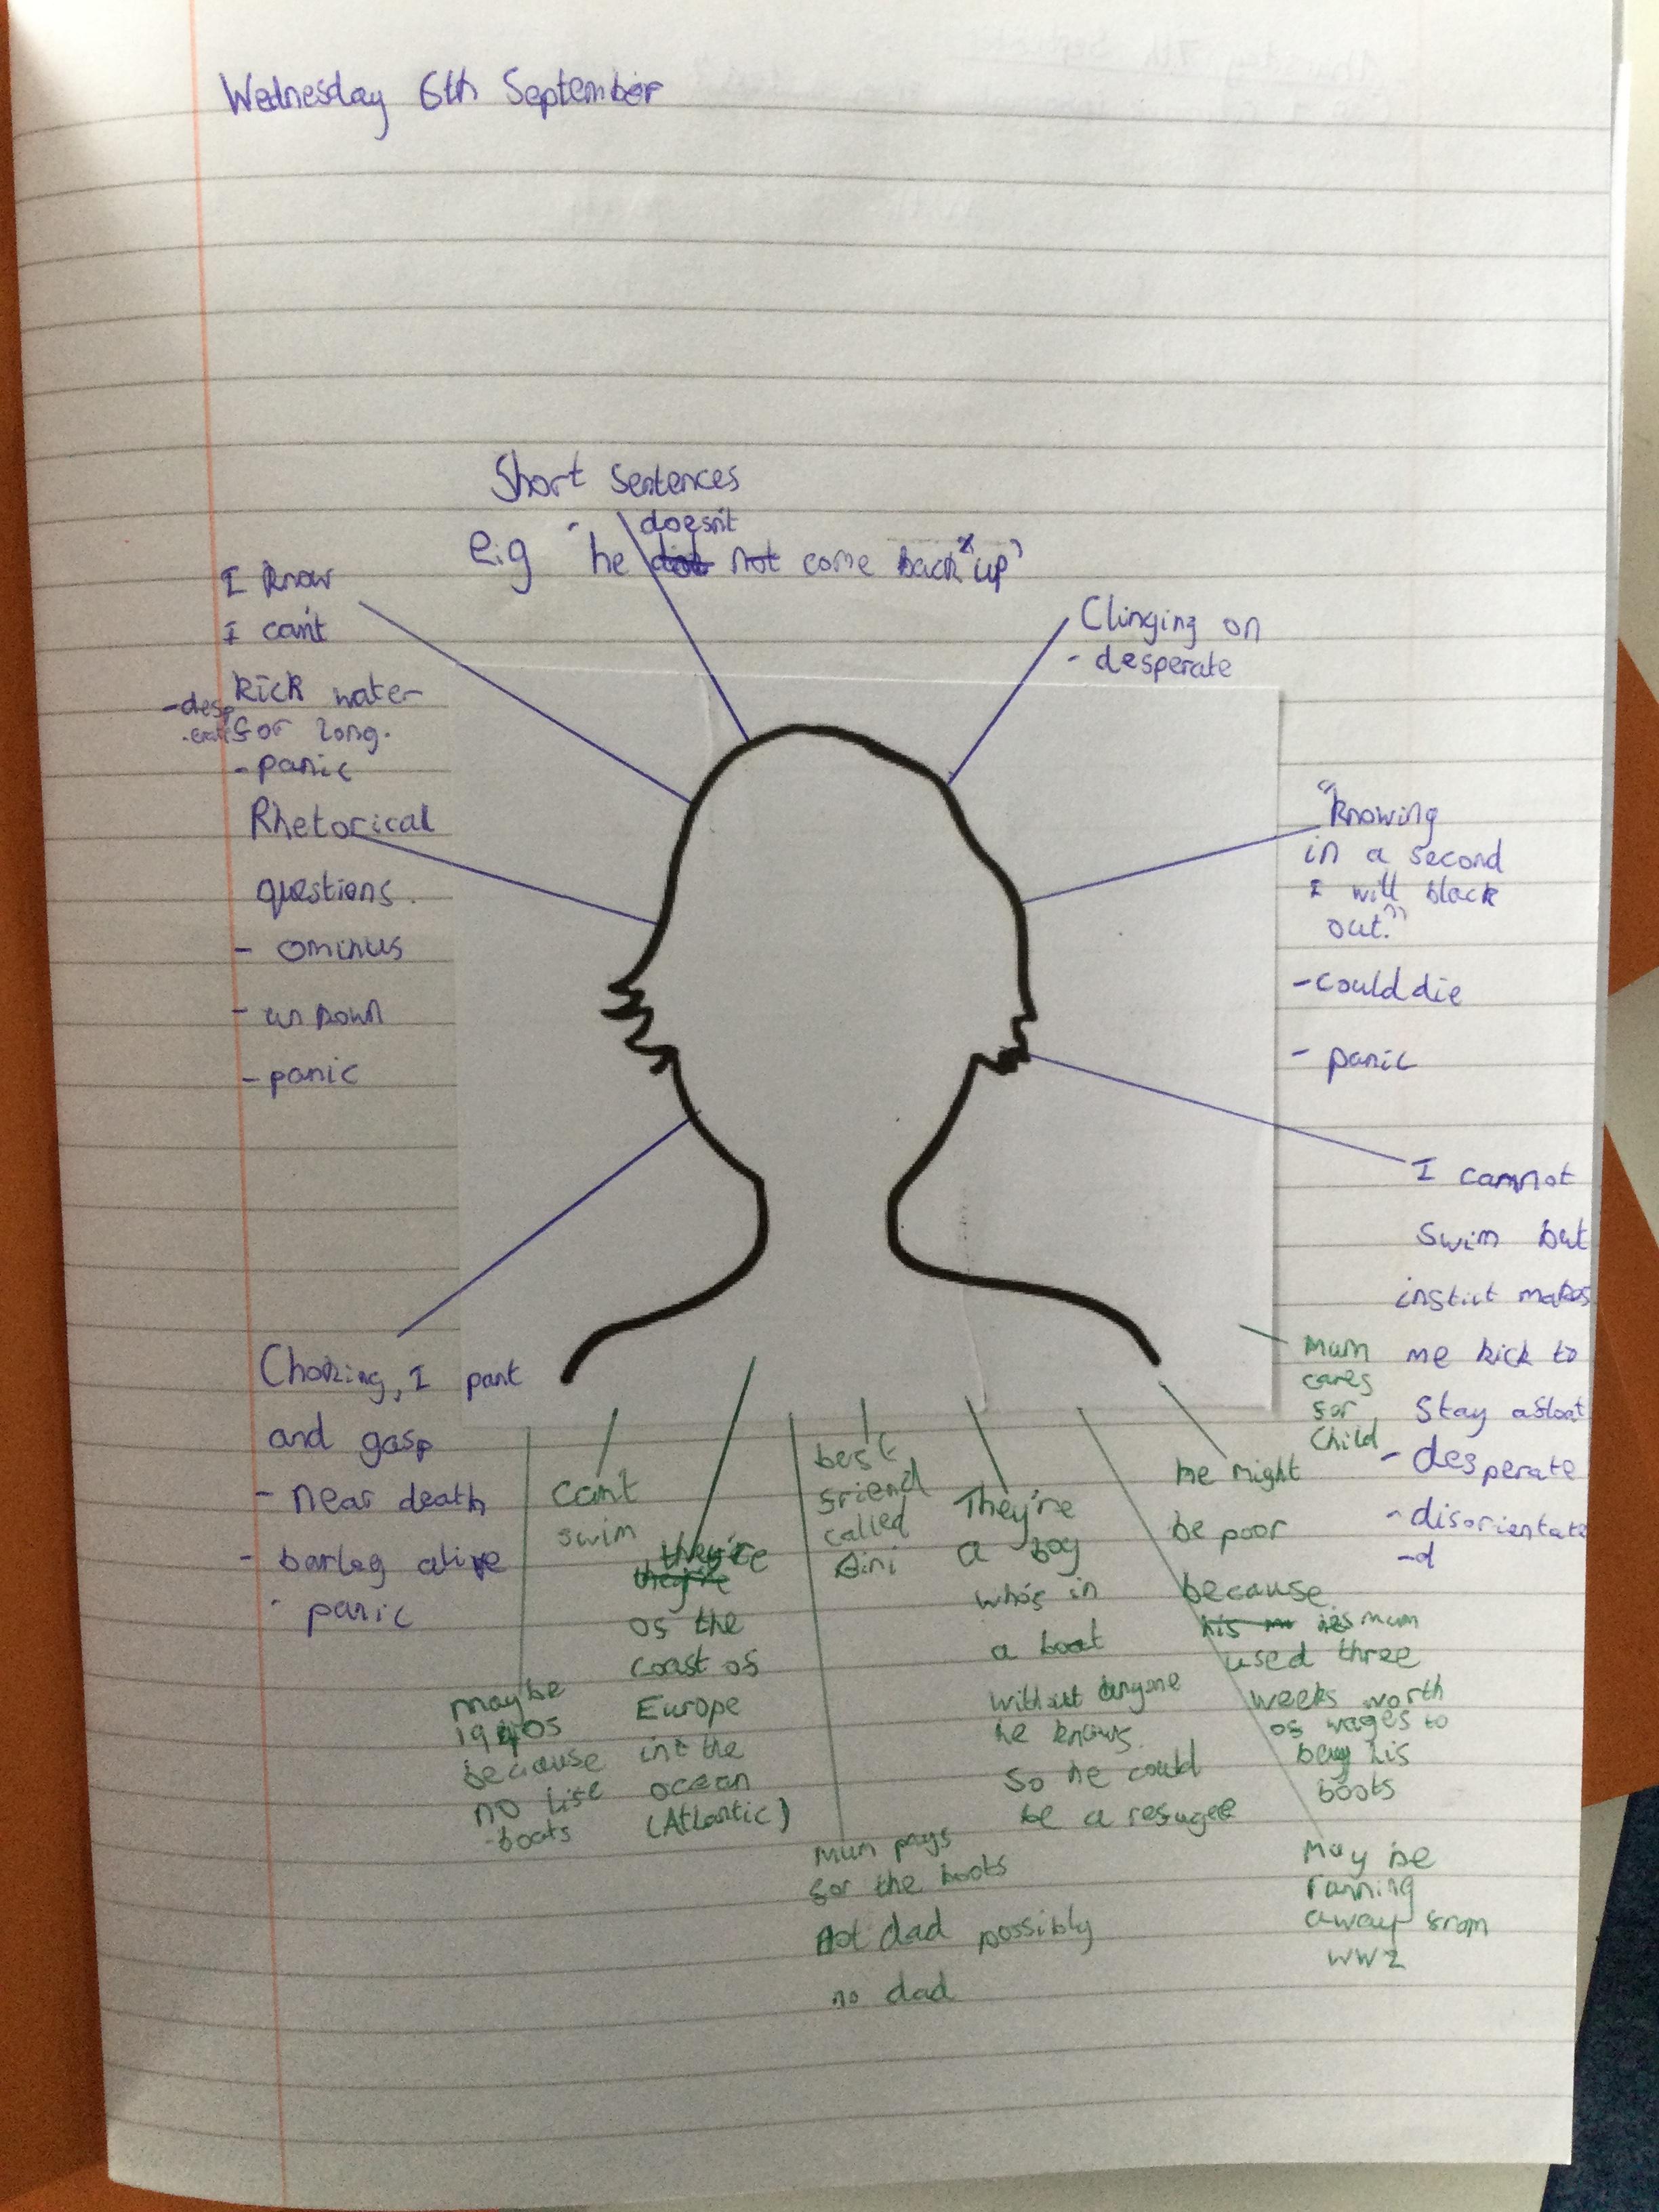 Wednesday 6th September
Short Sentences
doesn't
e.g "he did not come back up"
I know
I can't
kick water
for long.
-desp
-erate
- panic
Clinging on
- desperate
Rhetorical
questions.
- ominus
- unkown
- panic
"knowing
in a second
I will black
out."
- could die
- panic
I cannot
swim but
instict makes
me kick to
stay afloat
- desperate
- disorientate
-d
Choking, I pant
and gasp
- near death
- barley alive
- panic
maybe
1940s
because
no life
-boats
can't
swim
they're
they're
of the
coast of
Europe
in the
ocean
(Atlantic)
Mum pays
for the boots
not dad possibly
no dad
best
friend
called
They're
a boy
who's in
a boat
without anyone
he knows.
So he could
be a refugee
May be
running
away from
WW2
he might
be poor
because
his his mum
used three
weeks worth
of wages to
buy his
boots
Mum
cares
for
child